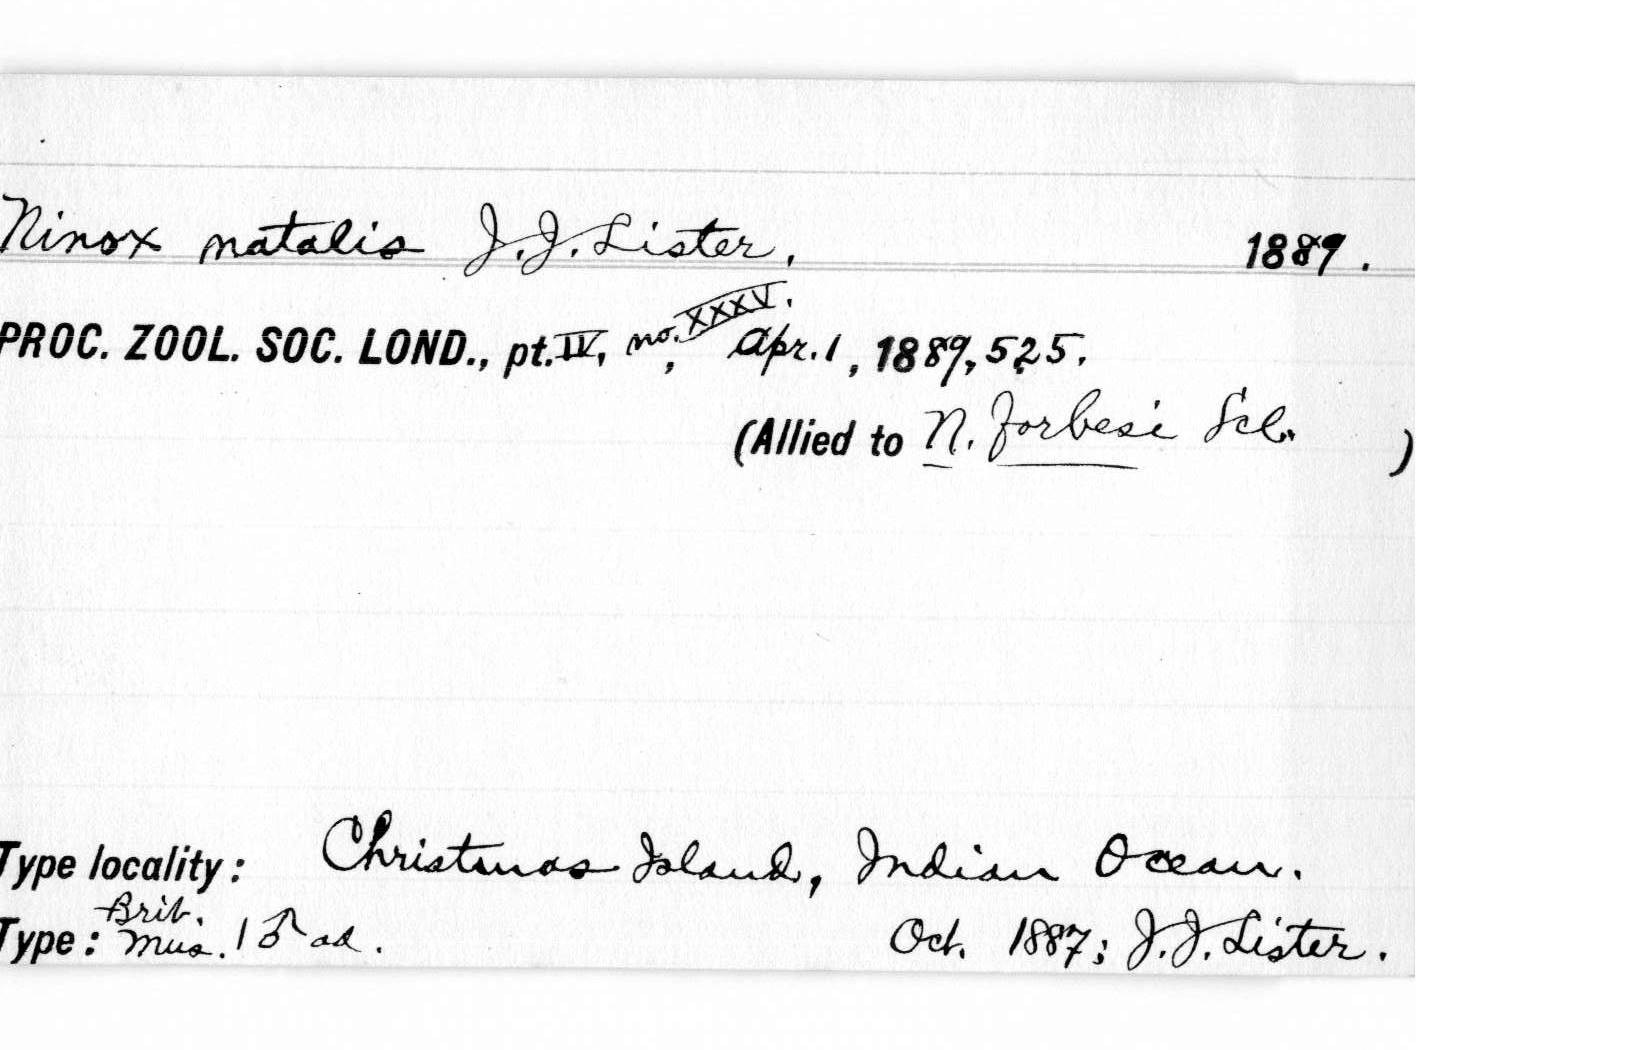 Ninox natalis J.J. Lister. 1889.
PROC. ZOOL. SOC. LOND., pt. IV, no. XXXV., Apr. 1, 1889, 525.
(Allied to N. forbesi Scl. )
Type locality: Christmas Island, Indian Ocean.
Type: Brit. Mus. 1 ♂ ad. Oct. 1887; J.J. Lister.